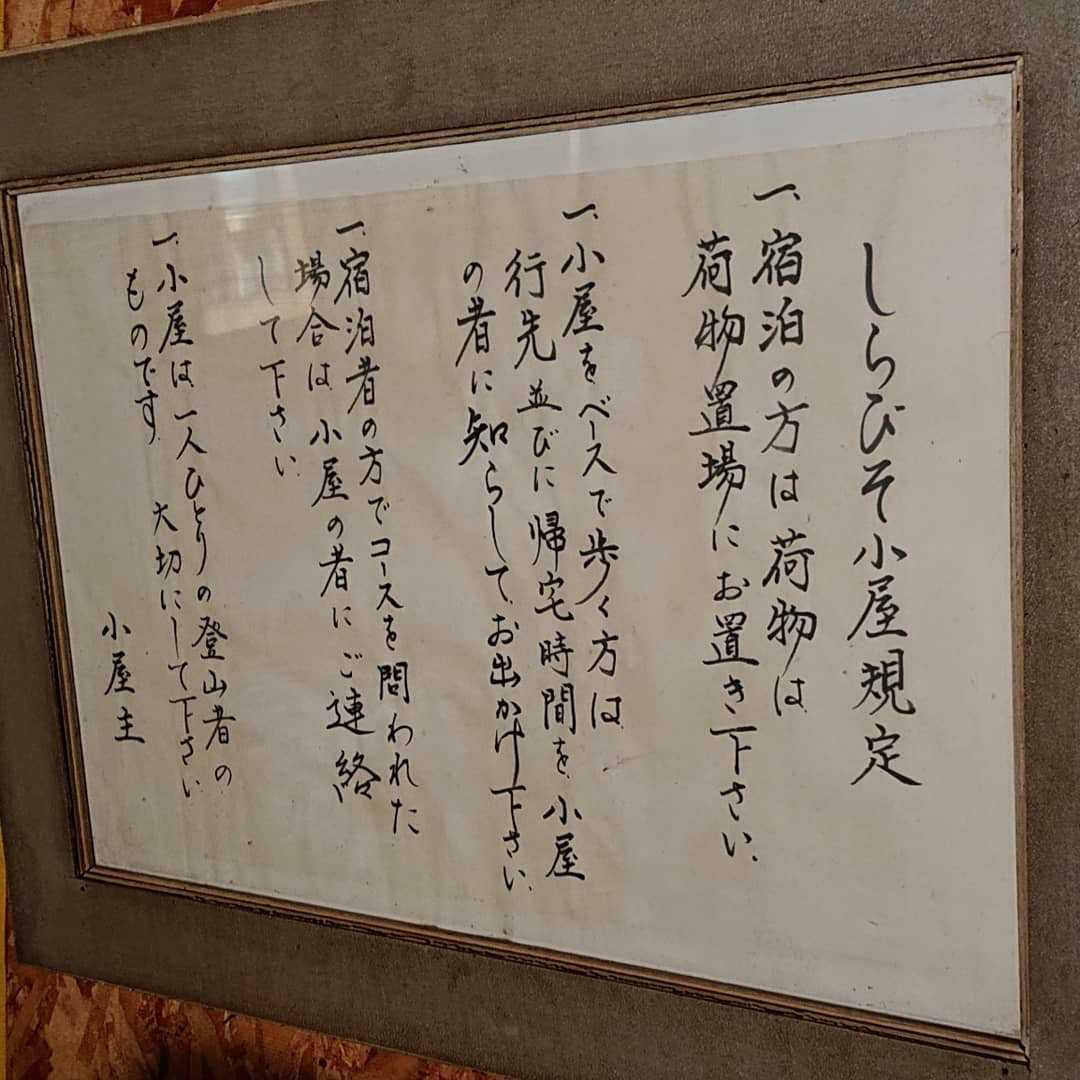 しらびそ小屋規定
一、宿泊の方は荷物は
荷物置場にお置き下さい、
一、小屋をベースで歩く方は
行先並びに帰宅時間を小屋
の者に知らしてお出かけ下さい、
一、宿泊者の方でコースを問われた
場合は小屋の者にご連絡
して下さい
一、小屋は一人ひとりの登山者の
ものです、大切にして下さい
小屋主